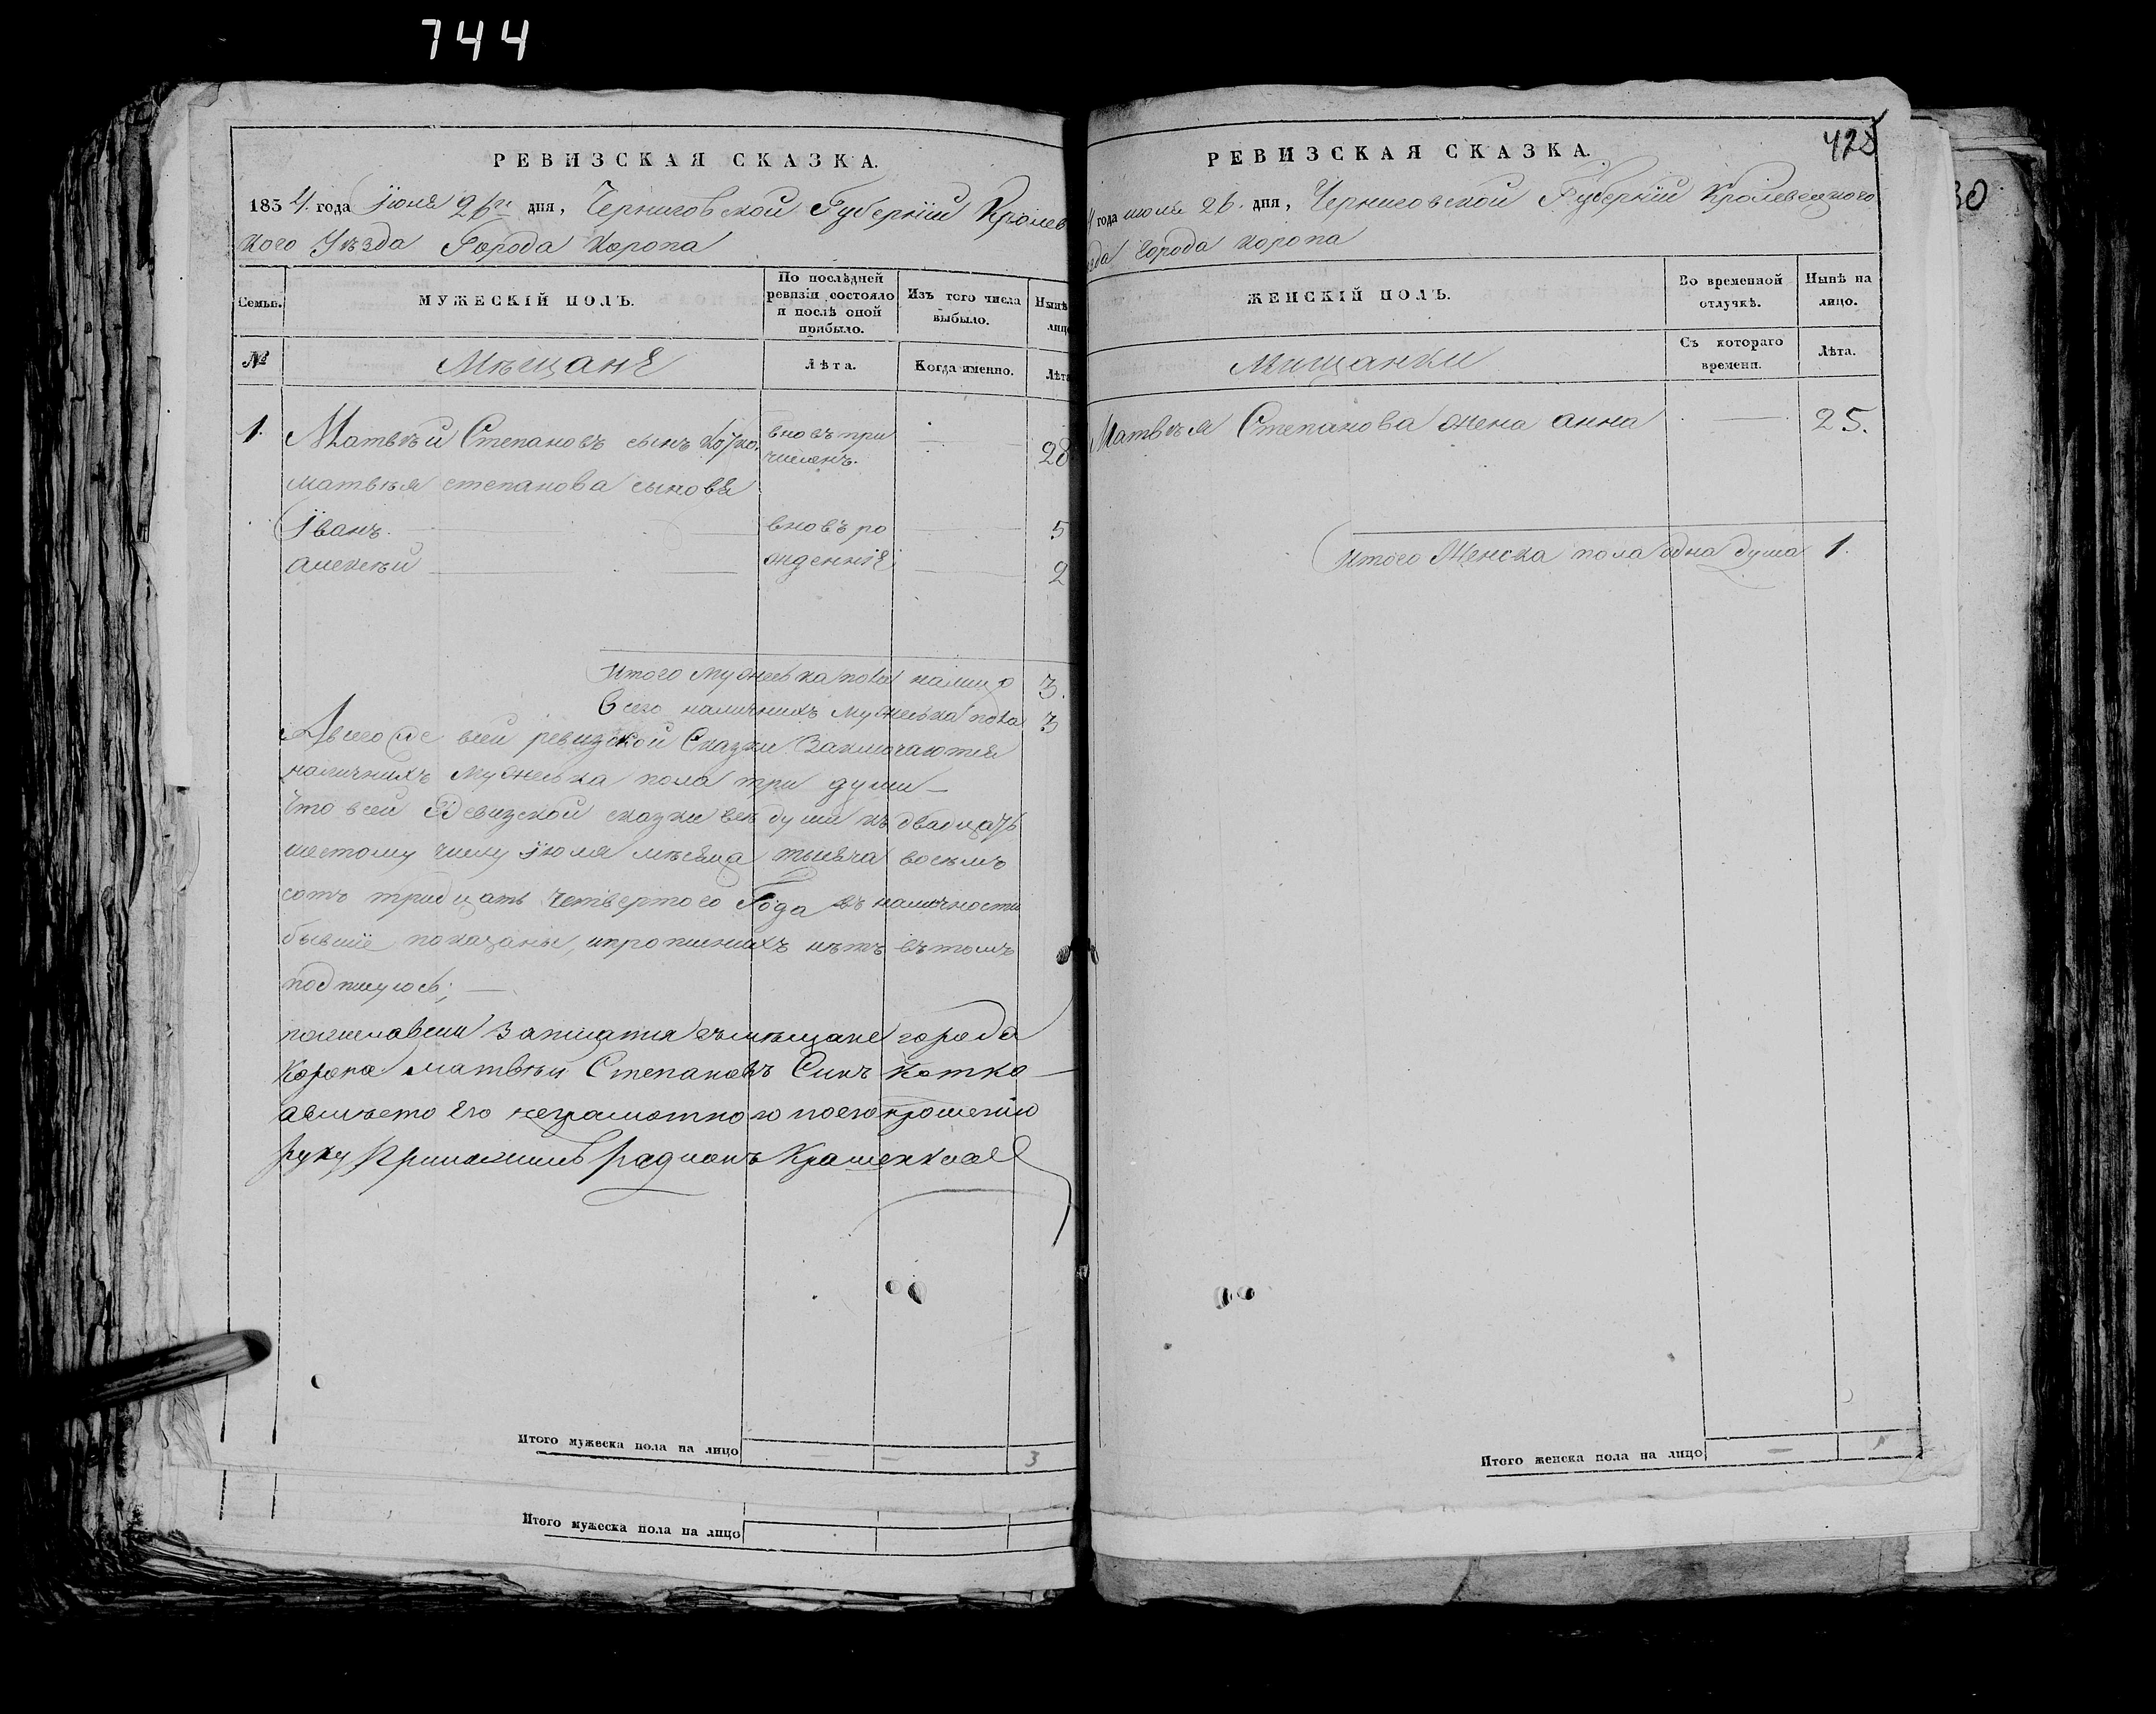 744
РЕВИЗСКАЯ СКАЗКА.
1834. года Іюня 26го дня, Черниговской Губерніи Кролев
кого Уѣзда Города Коропа
Семьи.
МУЖЕСКІЙ ПОЛЪ.
По послѣдней ревизіи состояло и послѣ оной прибыло.
Изъ того числа выбыло.
Нынѣ
лицо
№
Мѣщанѣ
Лѣта.
Когда именно.
Лѣта
1. Матвѣй Степановъ сынъ вновъ при
численъ. 28
матвѣя степанова сыновя
Іванъ. вновъ ро 5
алексѣй жденніе 2
итого мужеска пола налицо 3.
Всего наличнихъ мужеска пола 3
всей ревизской Сказки Заключаются
наличнихъ мужеска пола три души
Что всей Ревизской сказки всѣ души къ двадцать
шестому числу іюля мѣсяца тысяча восемъ
сотъ тридцать четвертого Года въ наличности
бывшіе показаны, ипрописныхъ нѣтъ вътомъ
подпишуюсь;
города
Коропа матвѣй Степановъ Синъ Котко
авмѣсто его неграмотного поего прошению
руку Приложилъ радионъ
Итого мужеска пола на лицо — — 3
Итого мужеска пола на лицо
425
30
РЕВИЗСКАЯ СКАЗКА.
4 года июля 26. дня, Черниговской Губерніи Кролевецкого
зда Города Коропа
ЖЕНСКІЙ ПОЛЪ.
Во временной отлучкѣ.
Нынѣ на лицо.
Мищанки
Съ котораго времени.
Лѣта.
Матвѣя Степанова жена анна — 25.
итого Женска пола одна душа 1.
Итого женска пола на лицо — 1